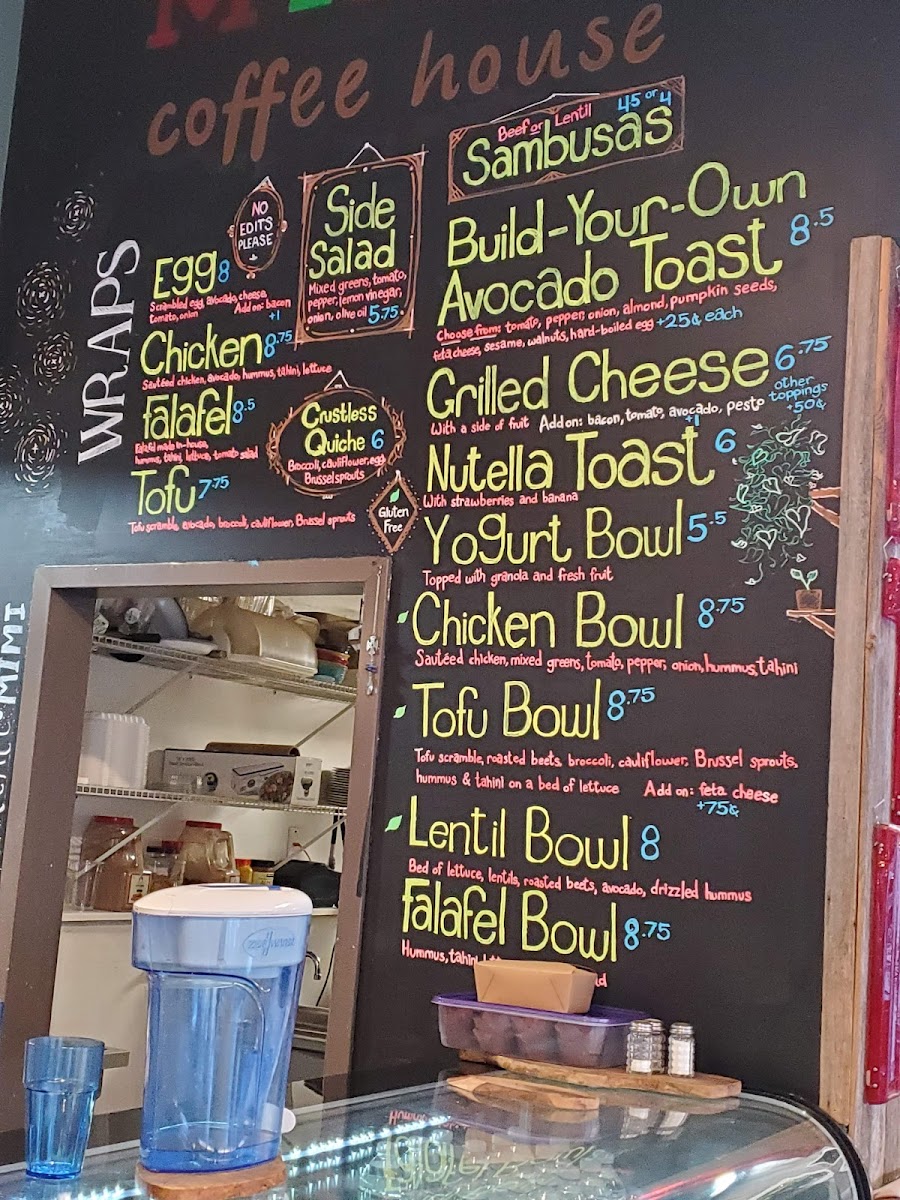 coffee house
NO
EDITS
PLEASE
WRAPS
Egg 8
Scrambled egg, avocado, cheese,
tomato, onion Add on: bacon
+1
Chicken 8.75
Sautéed chicken, avocado, hummus, tahini, lettuce
falafel 8.5
Falafel made in-house,
hummus, tahini, lettuce, tomato salad
Tofu 7.75
Tofu scramble, avocado, broccoli, cauliflower, Brussel sprouts
Side
Salad
Mixed greens, tomato,
pepper, lemon vinegar,
onion, olive oil 5.75
Crustless
Quiche 6
Broccoli, cauliflower, egg
Brussel sprouts
Gluten
Free
Beef or Lentil 45 or 4
Sambusas
Build-Your-Own
Avocado Toast 8.5
Choose from: tomato, pepper, onion, almond, pumpkin seeds,
feta cheese, sesame, walnuts, hard-boiled egg +25¢ each
Grilled Cheese 6.75
With a side of fruit Add on: bacon, tomato, avocado, pesto
+1
other
toppings
+50¢
Nutella Toast 6
With strawberries and banana
Yogurt Bowl 5.5
Topped with granola and fresh fruit
Chicken Bowl 8.75
Sautéed chicken, mixed greens, tomato, pepper, onion, hummus, tahini
Tofu Bowl 8.75
Tofu scramble, roasted beets, broccoli, cauliflower, Brussel sprouts,
hummus & tahini on a bed of lettuce Add on: feta cheese
+75¢
Lentil Bowl 8
Bed of lettuce, lentils, roasted beets, avocado, drizzled hummus
falafel Bowl 8.75
Hummus, tahini,
MIMI